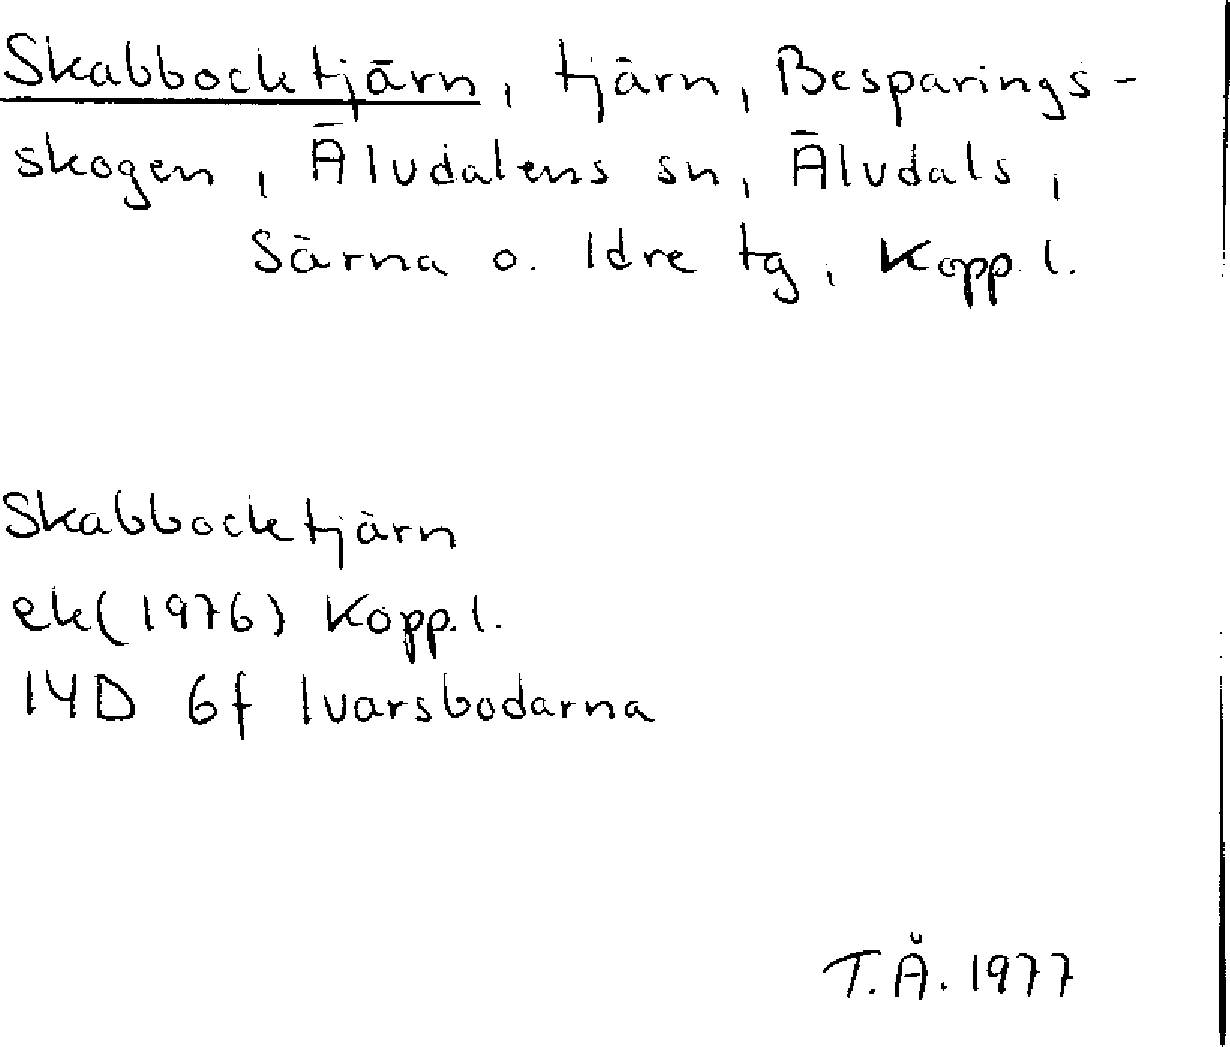 Skabbocktjärn, tjärn, Besparings-
skogen, Älvdalens sn, Älvdals,
Särna o. Idre tg, Kopp.l.
Skabbocktjärn
ek(1976) Kopp.l.
14D 6f Ivarsbodarna
T.Å. 1977